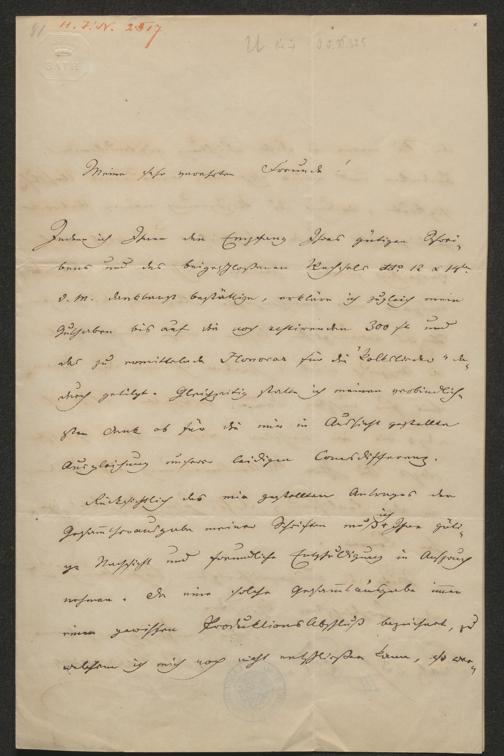 81
H. I. N. 2817
BATH
Meine sehr verehrten Freunde!
Indem ich Ihnen den Empfang Ihres gütigen Schrei-
bens und des beigeschloßenen Wechsels dto 12 a 14tn
d. M. dankbarst bestättige, erkläre ich zugleich mein
Guthaben bis auf die noch restirenden 300 fl und
das zu ermittelnde Honorar für die "Volkslieder" da-
durch getilgt. Gleichzeitig statte ich meinen verbindlich-
sten Dank ab für die mir in Aussicht gestellte
Ausgleichung unserer leidigen Coursdifferenz.
Rücksichtlich des mir gestellten Antrages der
Gesammtherausgabe meiner Schriften muß ich Ihre güti-
ge Nachsicht und freundliche Entschuldigung in Anspruch
nehmen. Da eine solche Gesammtausgabe immer
einen gewissen Produktions Abschluß bezeichnet, zu
welchem ich mich noch nicht entschließen kann, so wer-